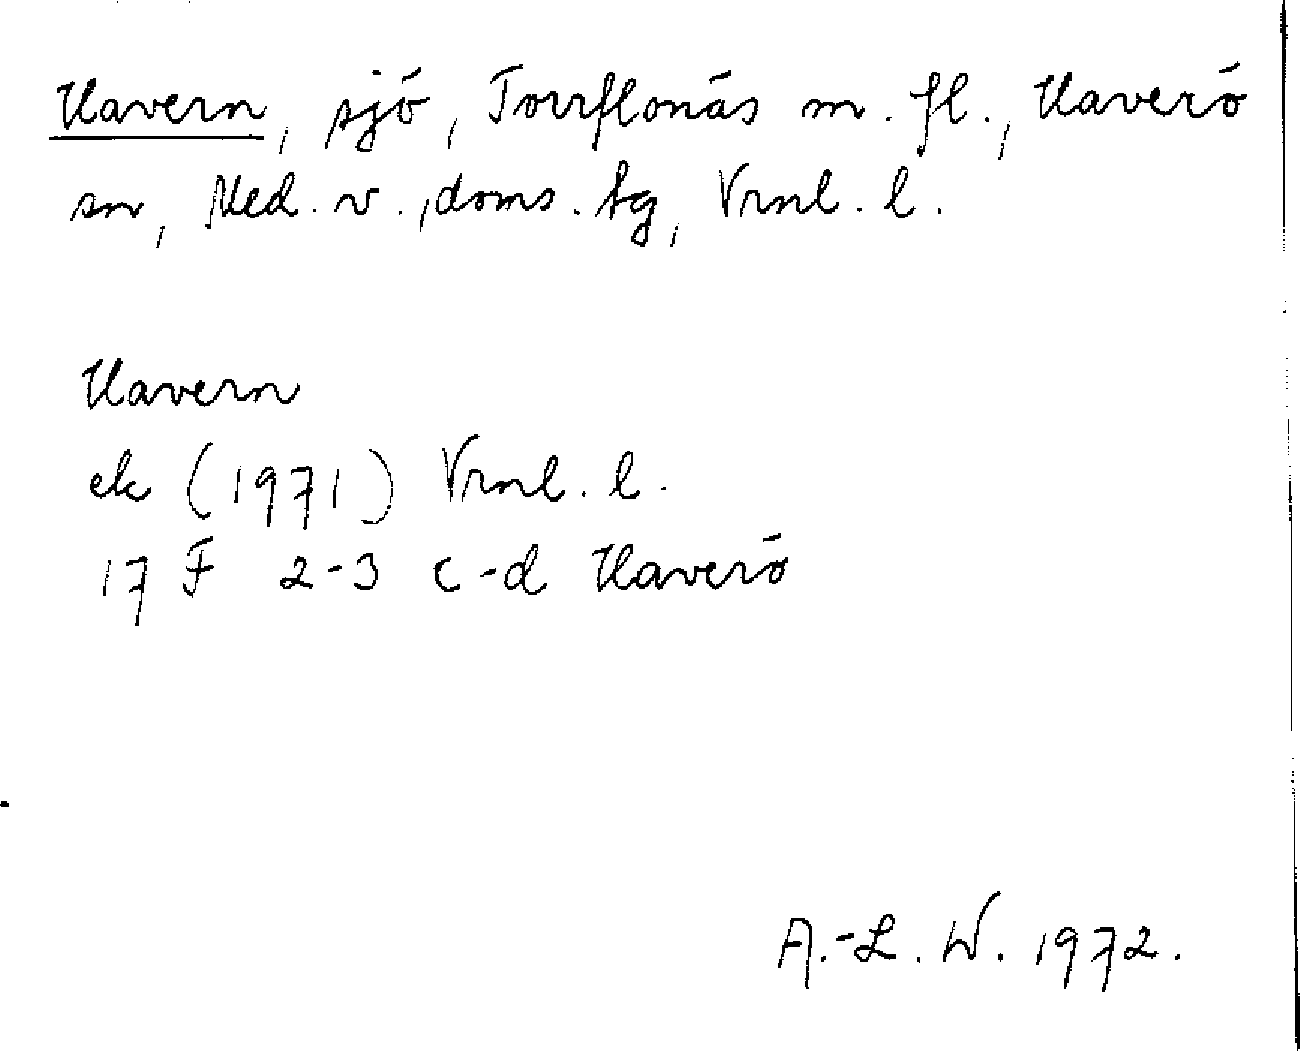 Havern, sjö, Torrflonäs m. fl., Haverö
sn, Med. v., doms. tg, Vrnl. l.
Havern
ek (1971) Vrnl. l.
17 F 2-3 c-d Haverö
A.-L. W. 1972.